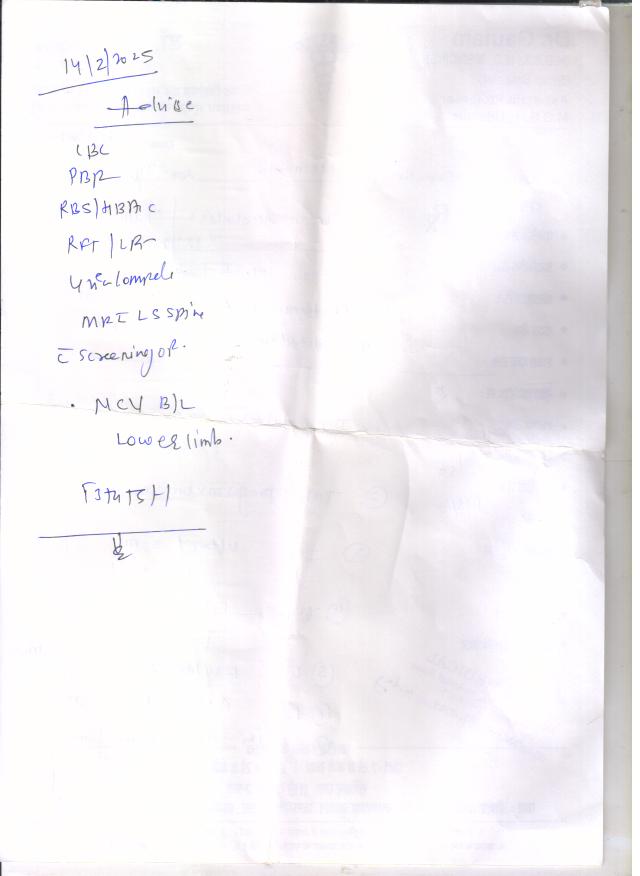 14/2/2025
Advise
CBC
PBF
RBS/HBA1C
RFT/LFT
Urine Complete
MRI LS Spine
c̄ screening of.
. NCV B/L
Lower limb.
T3T4TSH